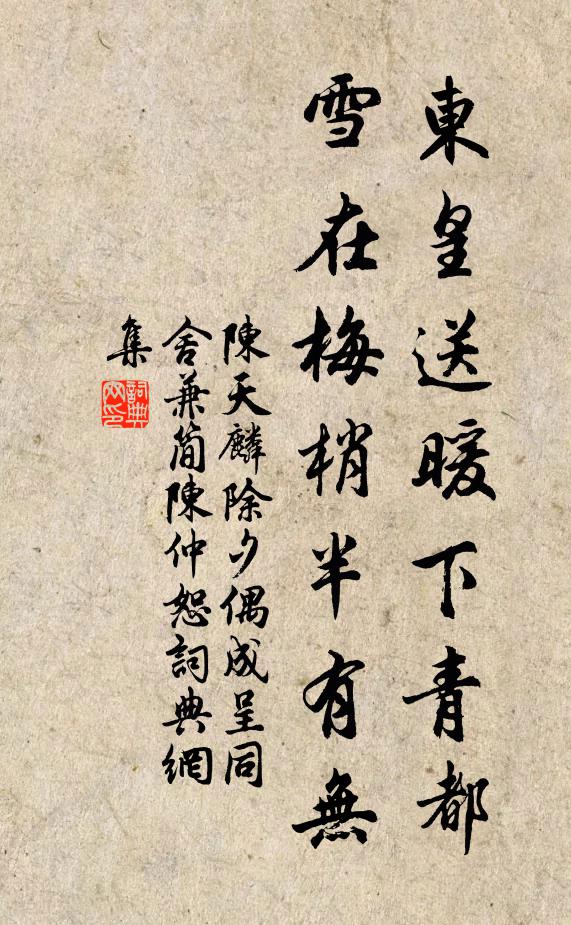 東皇送暖下青都
雪在梅梢半有無
陳天麟除夕偶成呈同
舍兼簡陳仲恕詞典網
集
詞典網印